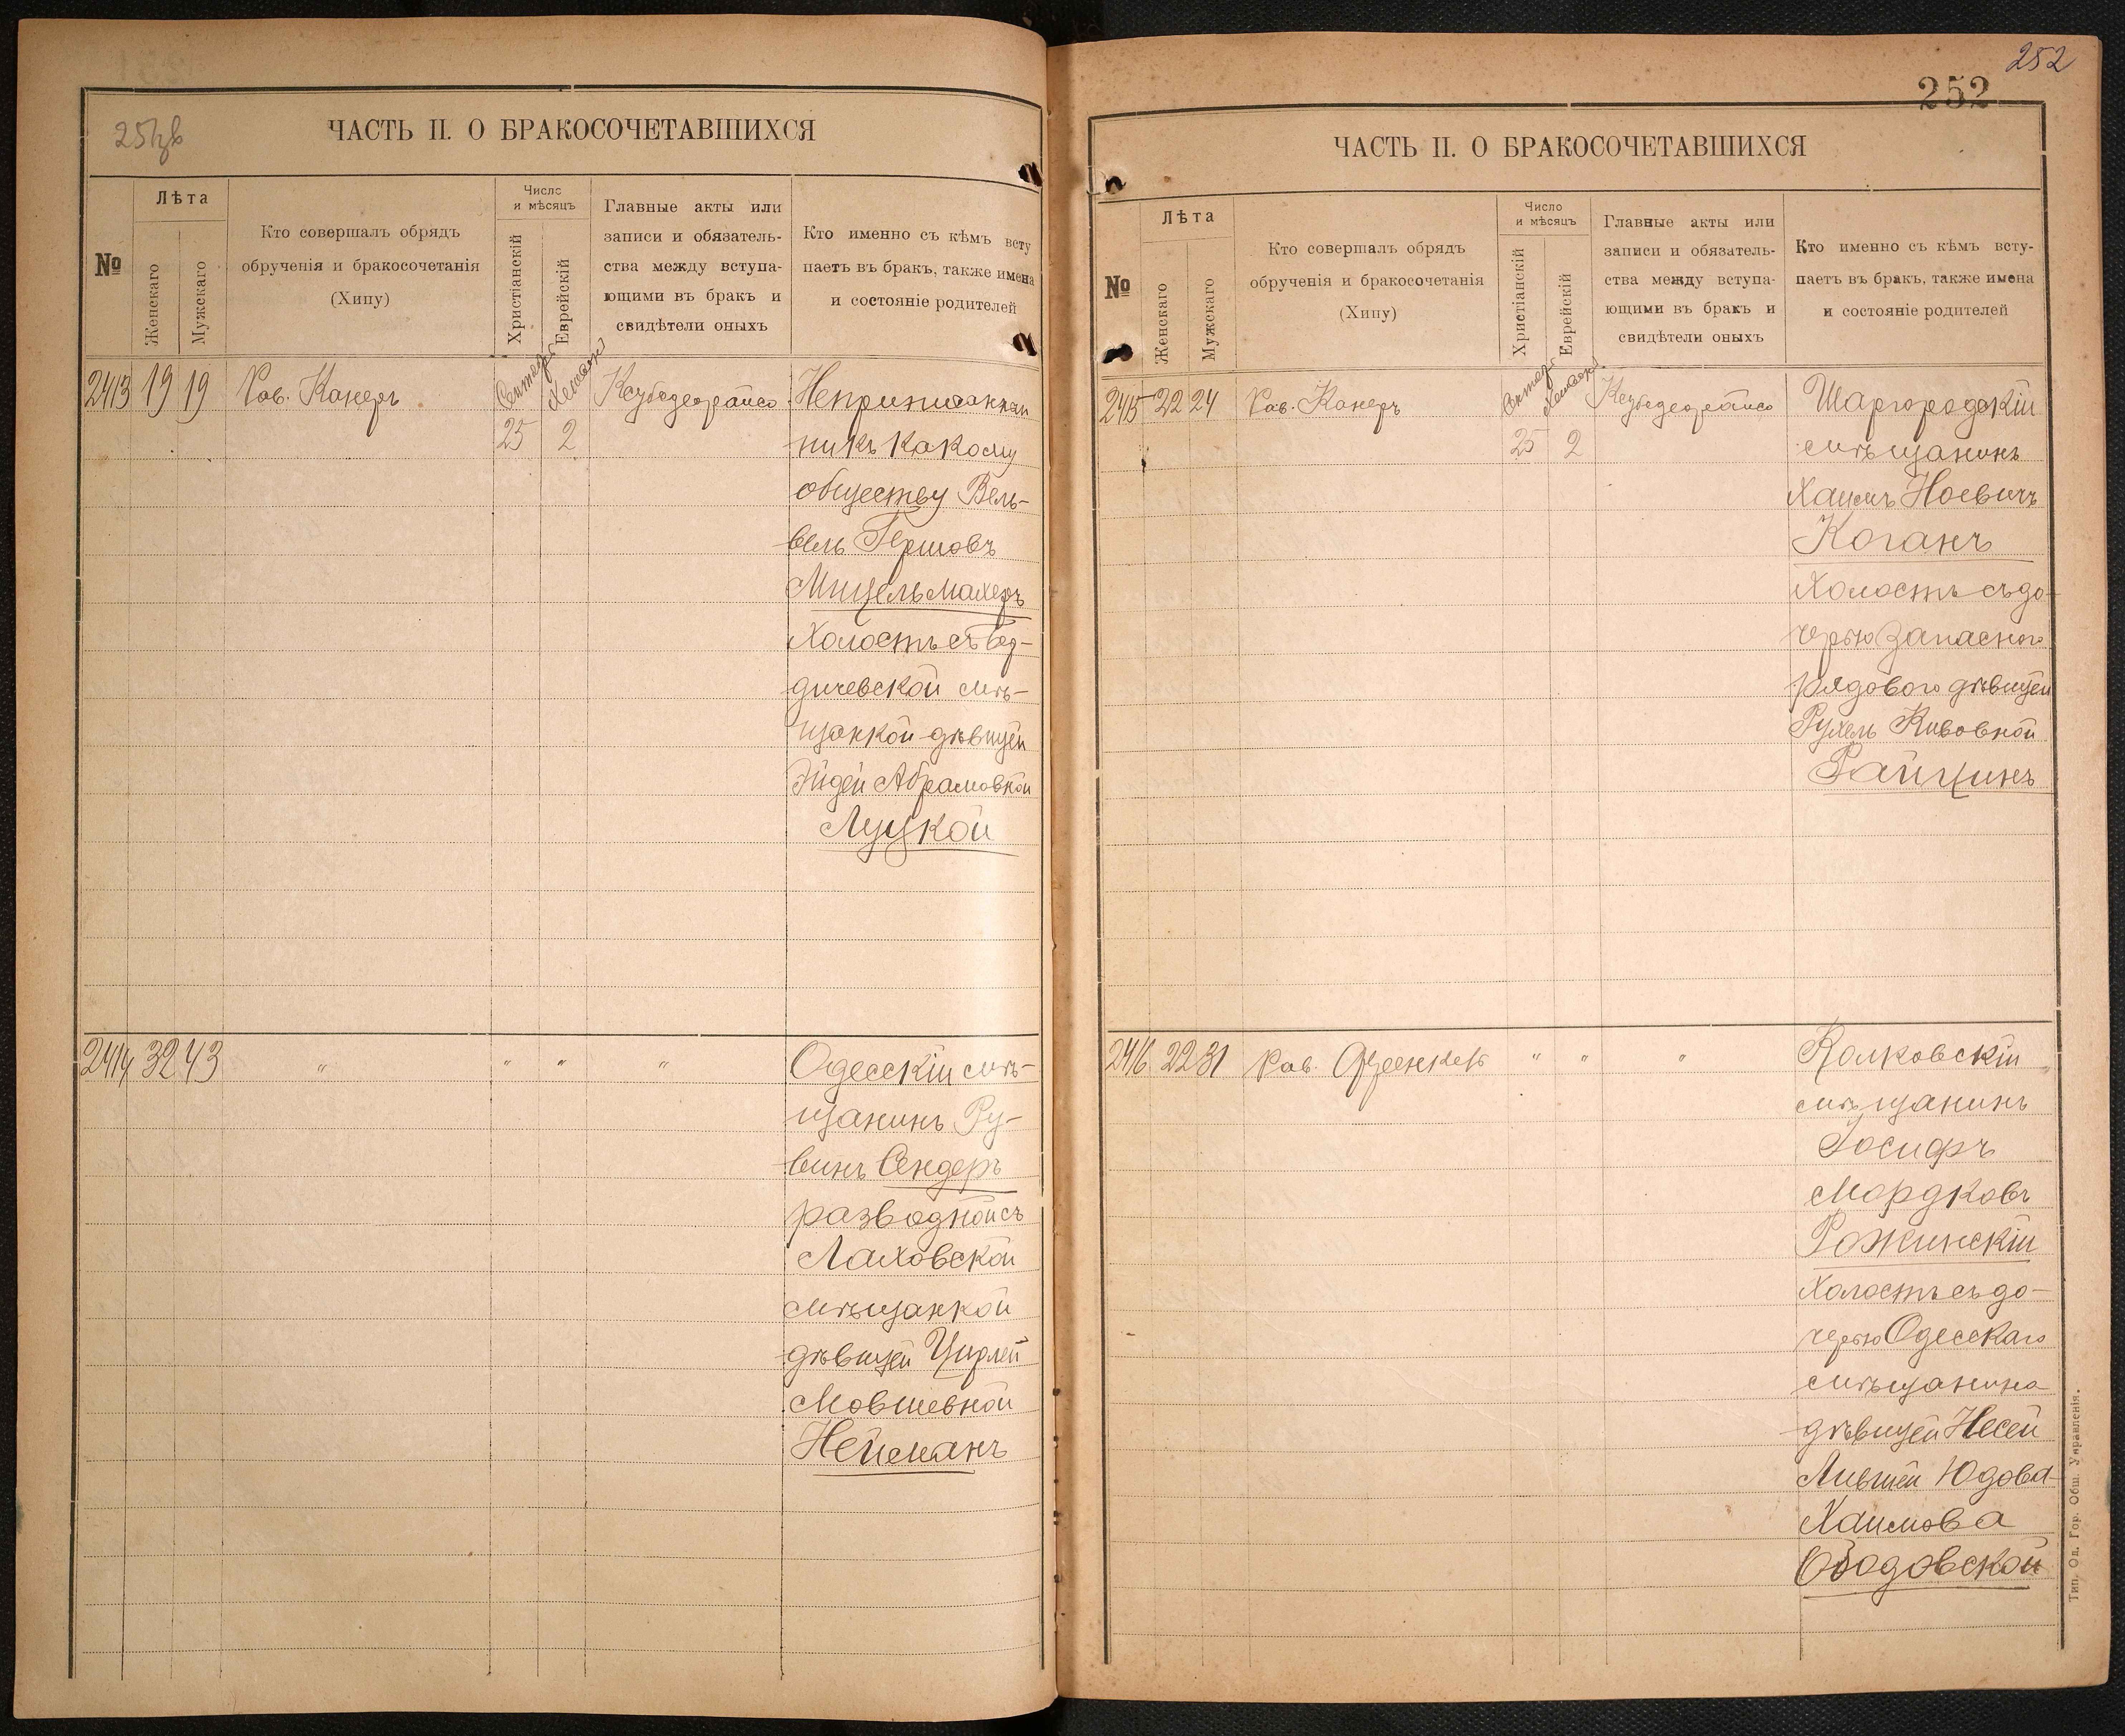 251об
ЧАСТЬ II. О БРАКОСОЧЕТАВШИХСЯ
№
Лѣта
Женскаго
Мужскаго
Кто совершалъ обрядъ
обрученія и бракосочетанія
(Хипу)
Число
и мѣсяцъ
Христіанскій
Еврейскій
Главные акты или
записи и обязатель-
ства между вступа-
ющими въ бракъ и
свидѣтели оныхъ
Кто именно съ кѣмъ всту
паетъ въ бракъ, также имена
и состояніе родителей
2413 19 19 Рав. Канеръ
25 2
Неприписанный
никъ какому
обществу Вель-
вель Гершовъ
Мицельмахеръ
Холостъ съ Бер-
дичевской мѣ-
щанкой дѣвицей
Эйдей Абрамовной
Луцкой
2414 32 43 " " " "
Одесскій мѣ-
щанинъ Ру-
винъ Сендеръ
разводной съ
Лаховской
мѣщанкой
дѣвицей Цирлей
Мовшевной
Нейманъ
252
252
ЧАСТЬ II. О БРАКОСОЧЕТАВШИХСЯ
№
Лѣта
Женскаго
Мужскаго
Кто совершалъ обрядъ
обрученія и бракосочетанія
(Хипу)
Число
и мѣсяцъ
Христіанскій
Еврейскій
Главные акты или
записи и обязатель-
ства между вступа-
ющими въ бракъ и
свидѣтели оныхъ
Кто именно съ кѣмъ всту-
паетъ въ бракъ, также имена
и состояніе родителей
2415 22 24 Рав. Канеръ
25 2
Шаргородскій
мѣщанинъ
Хаимъ Ноевичъ
Коганъ
Холостъ съ до-
черью Запасного
рядового дѣвицей
Рухель Кивовной
Райцинъ
2416 22 31 Рав. " " "
Колковскій
мѣщанинъ
Іосифъ
Мордковъ
Рожинскій
Холостъ съ до-
черью Одесскаго
мѣщанина
дѣвицей Несей
Ліьшей Юдова-
Хаимова
Ободовской
Тип. Од. Гор. Общ. Управленія.